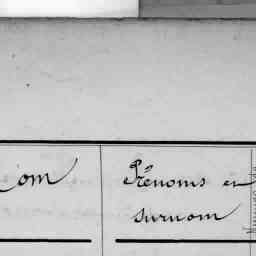 om
Prénoms et
surnom